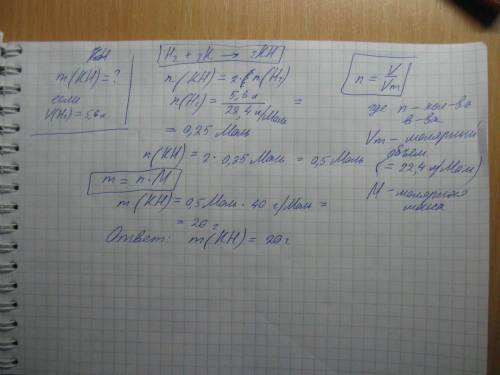 КН
m(KH) = ?
если
V(H₂) = 5,6 л
H₂ + 2K → 2KH
n(KH) = 2 · n(H₂)
n(H₂) = 5,6 л / 22,4 л/моль =
= 0,25 моль
n(KH) = 2 · 0,25 моль = 0,5 моль
m = n · M
m(KH) = 0,5 моль · 40 г/моль =
= 20 г
Ответ: m(KH) = 20 г
n = V / Vm
где n - кол-во
в-ва
Vm - молярный
объем
(= 22,4 л/моль)
M - молярная
масса